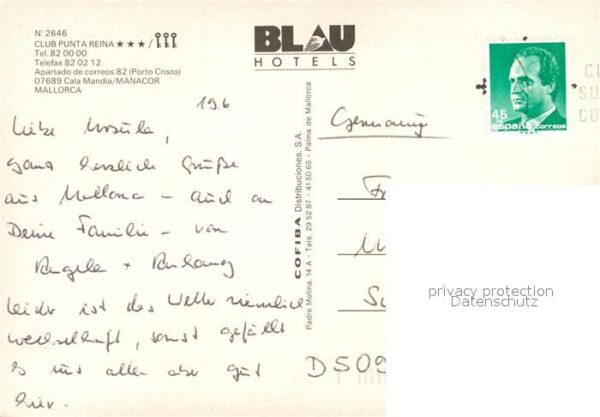 N° 2646
CLUB PUNTA REINA ★★★ /
Tel. 82 00 00
Telefax 82 02 12
Apartado de correos 82 (Porto Cristo)
07689 Cala Mandia/MANACOR
MALLORCA
BLAU
HOTELS
45
españa correos
COFIBA Distribuciones, S.A.
Padre Molina, 14 A - Tels. 29 52 87 - 41 50 65 - Palma de Mallorca
19.6
Liebe Ursula,
ganz herzliche Grüße
aus Mallorca - auch an
Deine Familie - von
Angela +
leider ist das Wetter ziemlich
wechselhaft, sonst gefällt
es uns allen aber gut
hier.
Germany
D 509
privacy protection
Datenschutz